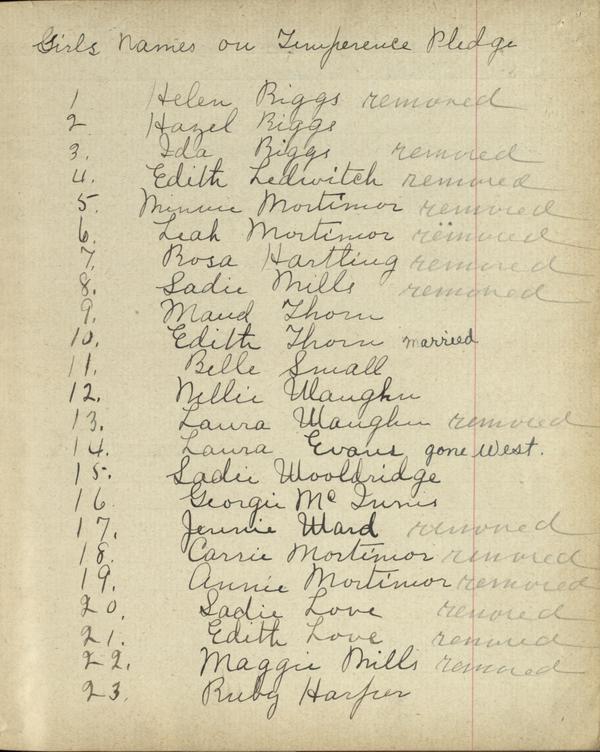 Girls Names on Temperence Pledge
1 Helen Biggs removed
2 Hazel Biggs
3. Ida Biggs removed
4. Edith Ledwitch removed
5. Minnie Mortimor removed
6. Leah Mortimor removed
7. Rosa Hartling removed
8. Sadie Mills removed
9. Maud Thorn
10. Edith Thorn married
11. Belle Small
12. Nellie Waughn
13. Laura Waughn removed
14. Laura Evans gone West.
15. Sadie Wooldridge
16 Georgie Mc Innis
17. Jennie Ward removed
18. Carrie Mortimor removed
19. Annie Mortimor removed
20. Sadie Love removed
21. Edith Love removed
22. Maggie Mills removed
23. Ruby Harper